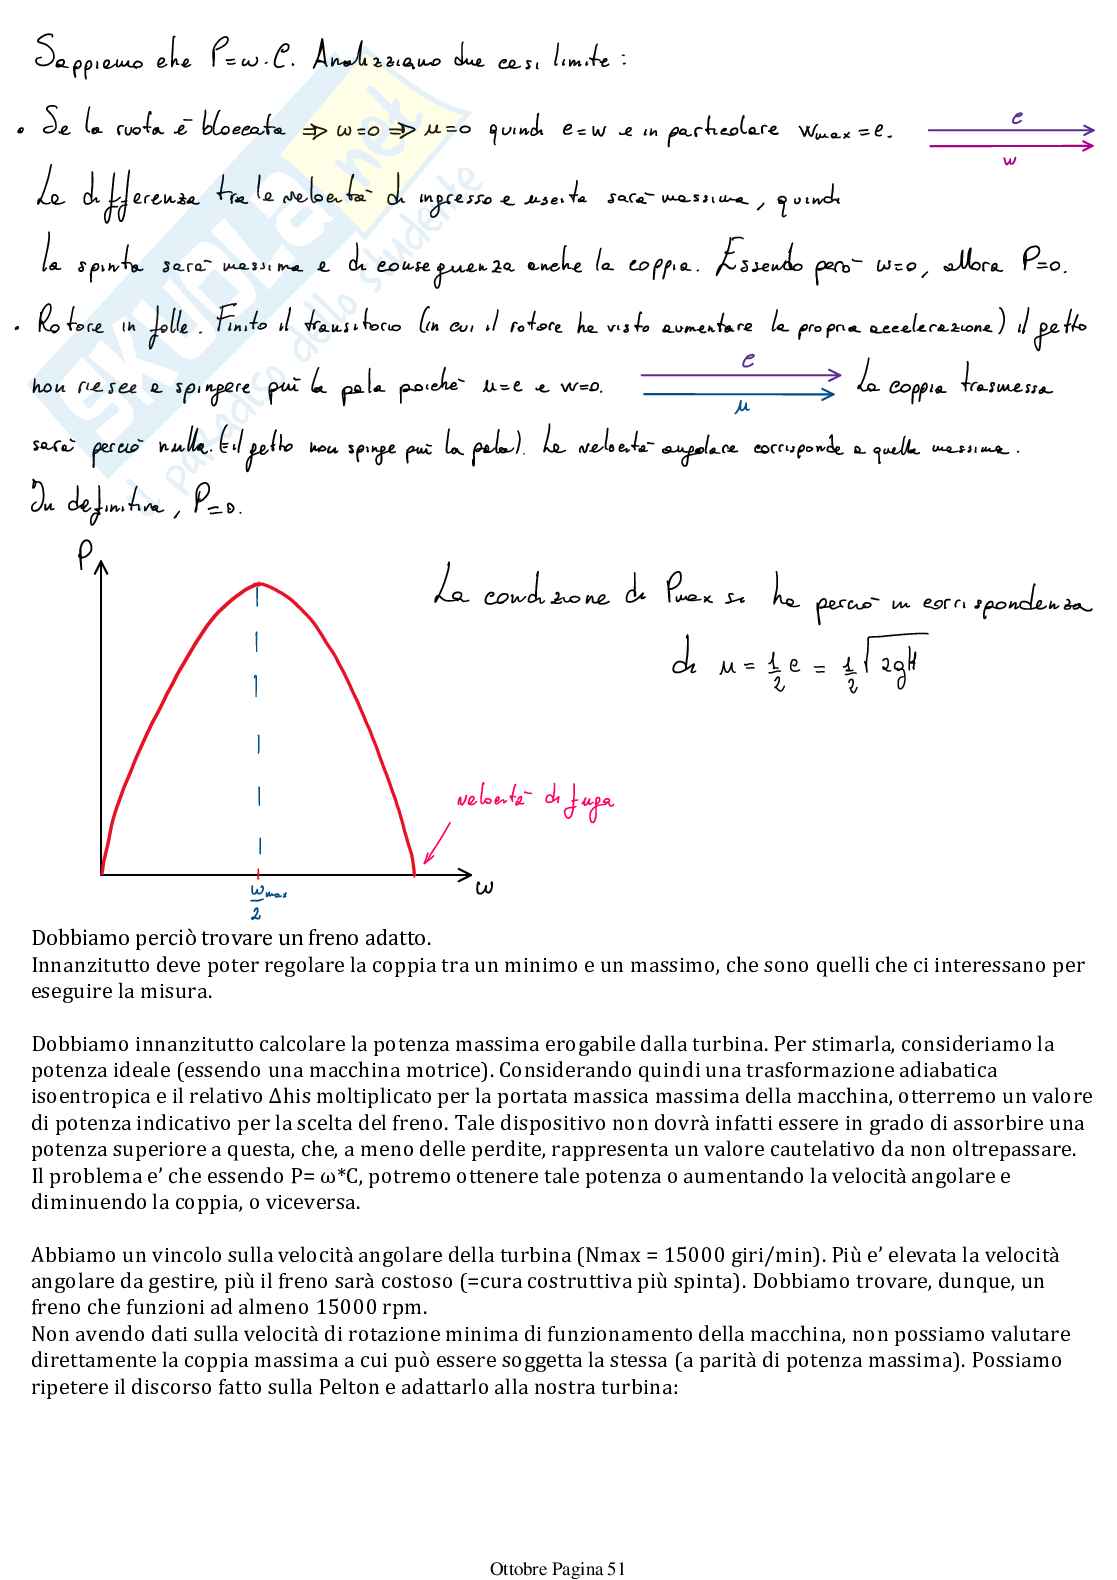 Sappiamo che P=ω·C. Analizziamo due casi limite:
• Se la ruota è bloccata ⇒ ω=0 ⇒ u=0 quindi c=w e in particolare wmax=c.
c
w
La differenza tra le velocità di ingresso e uscita sarà massima, quindi
la spinta sarà massima e di conseguenza anche la coppia. Essendo però ω=0, allora P=0.
• Rotore in folle. Finito il transitorio (in cui il rotore ha visto aumentare la propria accelerazione) il getto
non riesce a spingere più la pala poiché u=c e w=0.
c
u
La coppia trasmessa
sarà perciò nulla (il getto non spinge più la pala). La velocità angolare corrisponde a quella massima.
In definitiva, P=0.
P
La condizione di Pmax si ha perciò in corrispondenza
di u = 1/2 c = 1/2 √2gH
velocità di fuga
ω
ωmax/2
Dobbiamo perciò trovare un freno adatto.
Innanzitutto deve poter regolare la coppia tra un minimo e un massimo, che sono quelli che ci interessano per
eseguire la misura.
Dobbiamo innanzitutto calcolare la potenza massima erogabile dalla turbina. Per stimarla, consideriamo la
potenza ideale (essendo una macchina motrice). Considerando quindi una trasformazione adiabatica
isoentropica e il relativo Δhis moltiplicato per la portata massica massima della macchina, otterremo un valore
di potenza indicativo per la scelta del freno. Tale dispositivo non dovrà infatti essere in grado di assorbire una
potenza superiore a questa, che, a meno delle perdite, rappresenta un valore cautelativo da non oltrepassare.
Il problema e’ che essendo P= ω*C, potremo ottenere tale potenza o aumentando la velocità angolare e
diminuendo la coppia, o viceversa.
Abbiamo un vincolo sulla velocità angolare della turbina (Nmax = 15000 giri/min). Più e’ elevata la velocità
angolare da gestire, più il freno sarà costoso (=cura costruttiva più spinta). Dobbiamo trovare, dunque, un
freno che funzioni ad almeno 15000 rpm.
Non avendo dati sulla velocità di rotazione minima di funzionamento della macchina, non possiamo valutare
direttamente la coppia massima a cui può essere soggetta la stessa (a parità di potenza massima). Possiamo
ripetere il discorso fatto sulla Pelton e adattarlo alla nostra turbina:
SKUOLA.net
il paradiso dello studente
Ottobre Pagina 51